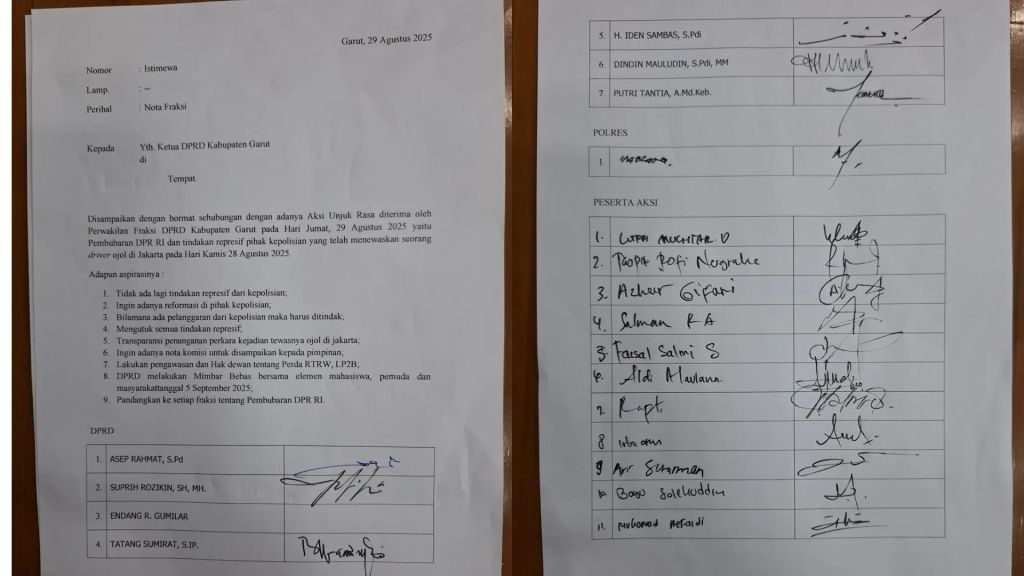 Garut, 29 Agustus 2025
Nomor : Istimewa
Lamp. : --
Perihal : Nota Fraksi
Kepada Yth. Ketua DPRD Kabupaten Garut
di
Tempat.
Disampaikan dengan hormat sehubungan dengan adanya Aksi Unjuk Rasa diterima oleh
Perwakilan Fraksi DPRD Kabupaten Garut pada Hari Jumat, 29 Agustus 2025 yaitu
Pembubaran DPR RI dan tindakan represif pihak kepolisian yang telah menewaskan seorang
driver ojol di Jakarta pada Hari Kamis 28 Agustus 2025.
Adapun aspirasinya :
1. Tidak ada lagi tindakan represif dari kepolisian;
2. Ingin adanya reformasi di pihak kepolisian;
3. Bilamana ada pelanggaran dari kepolisian maka harus ditindak;
4. Mengutuk semua tindakan represif;
5. Transparansi penanganan perkara kejadian tewasnya ojol di jakarta;
6. Ingin adanya nota komisi untuk disampaikan kepada pimpinan;
7. Lakukan pengawasan dan Hak dewan tentang Perda RTRW, LP2B;
8. DPRD melakukan Mimbar Bebas bersama elemen mahasiswa, pemuda dan
masyarakattanggal 5 September 2025;
9. Pandangkan ke setiap fraksi tentang Pembubaran DPR RI.
DPRD
1. ASEP RAHMAT, S.Pd
2. SUPRIH ROZIKIN, SH, MH.
3. ENDANG R. GUMILAR
4. TATANG SUMIRAT, S.IP.
5. H. IDEN SAMBAS, S.Pdi
6. DINDIN MAULUDIN, S.Pdi, MM
7. PUTRI TANTIA, A.Md.Keb.
POLRES
1.
PESERTA AKSI
1. LUTFI MUKHTAR D
2. Nugraha
3. Azhar Gifari
4. Salman R A
5. Faisal Salmi S
6. Aldi Maulana.
7.
8
9 Arif
10 Solehuddin
11.